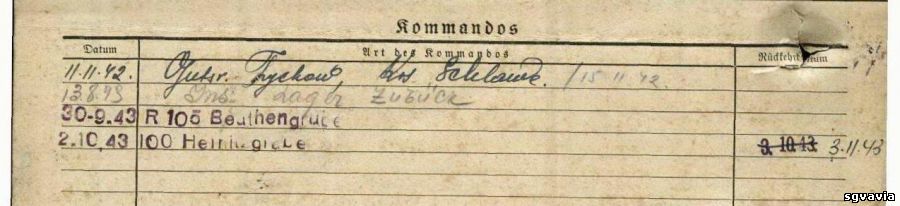 Kommandos
Datum Art des Kommandos Rückkehrdatum
11.11.42. Gutsv. Tychow, Krs Schlawe. /15.11.42.
13.8.43 Ins Lager zurück
30-9.43 R 105 Beuthengrube
2.10.43 100 Heinitzgrube 3.10.43 3.11.43
sgvavia